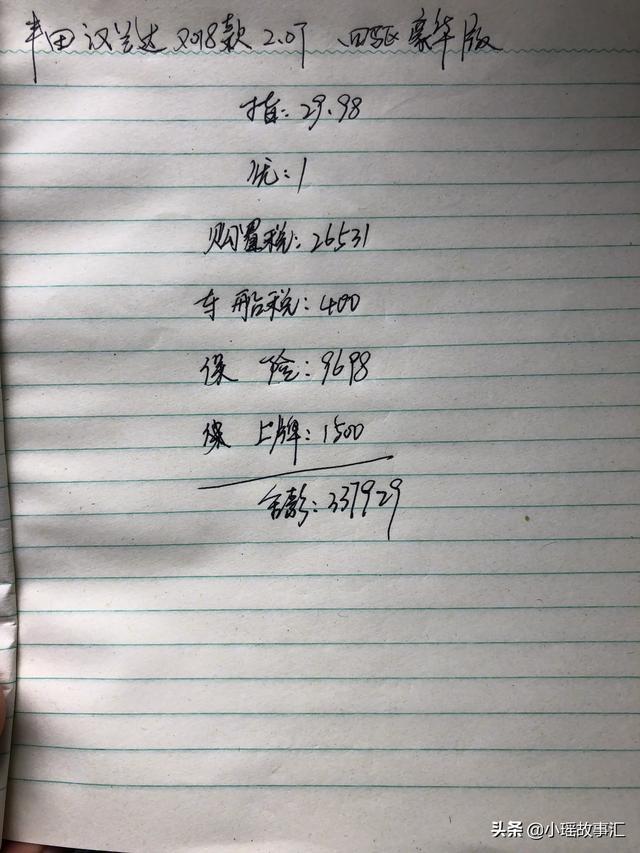 丰田汉兰达 2018款 2.0T 四驱豪华版
指:29.98
优:1
购置税:26531
车船税:400
保 险:9698
上牌:1500
全款:337929
头条 @小瑶故事汇